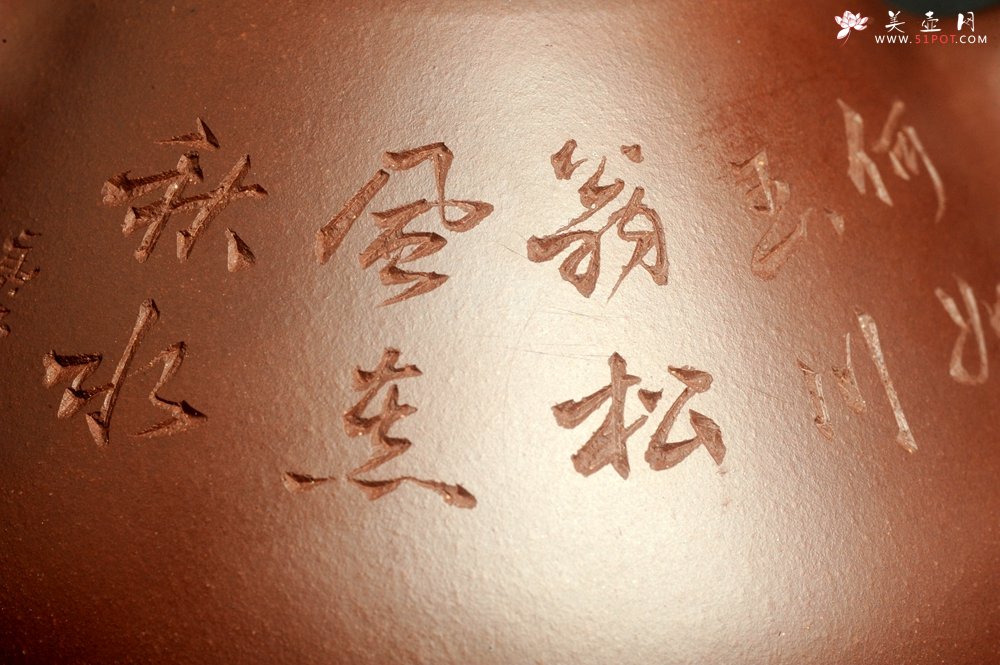 美壶网
WWW.51POT.COM
何如
玉川
翁松
風煮
秋水